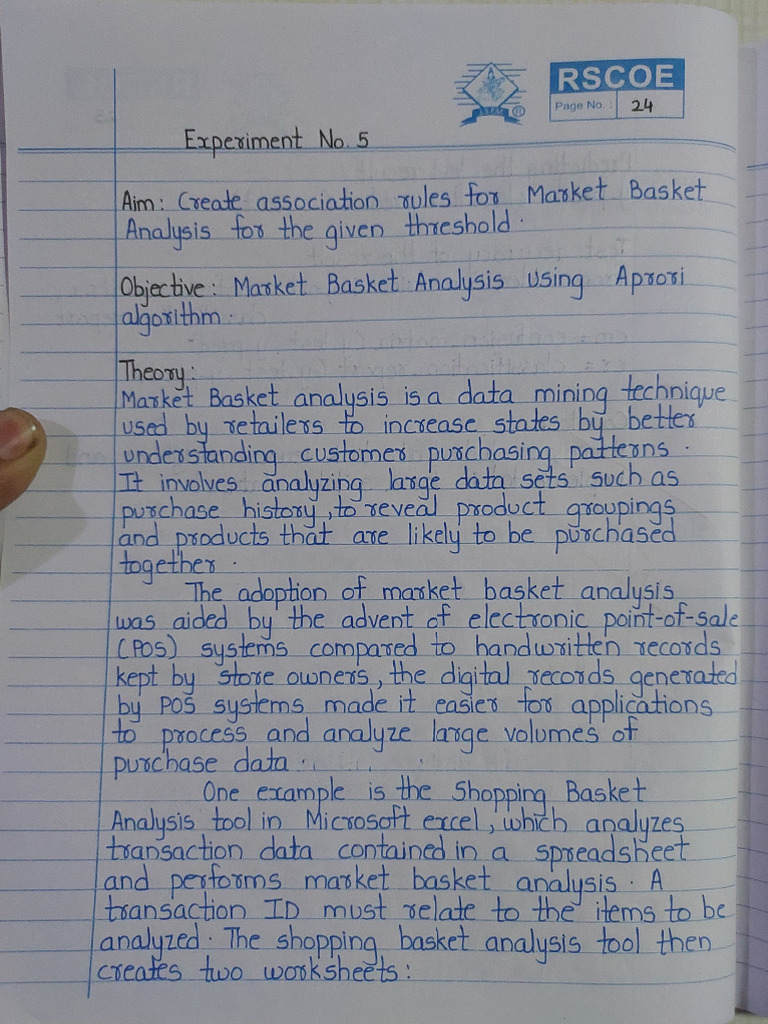 RSCOE
Page No. : 24
Experiment No. 5
Aim: Create association rules for Market Basket
Analysis for the given threshold.
Objective: Market Basket Analysis using Aprori
algorithm.
Theory:
Market Basket analysis is a data mining technique
used by retailers to increase states by better
understanding customer purchasing patterns.
It involves analyzing large data sets such as
purchase history, to reveal product groupings
and products that are likely to be purchased
together.
The adoption of market basket analysis
was aided by the advent of electronic point-of-sale
(POS) systems compared to handwritten records
kept by store owners, the digital records generated
by POS systems made it easier for applications
to process and analyze large volumes of
purchase data.
One example is the Shopping Basket
Analysis tool in Microsoft excel, which analyzes
transaction data contained in a spreadsheet
and performs market basket analysis. A
transaction ID must relate to the items to be
analyzed. The shopping basket analysis tool then
creates two worksheets: